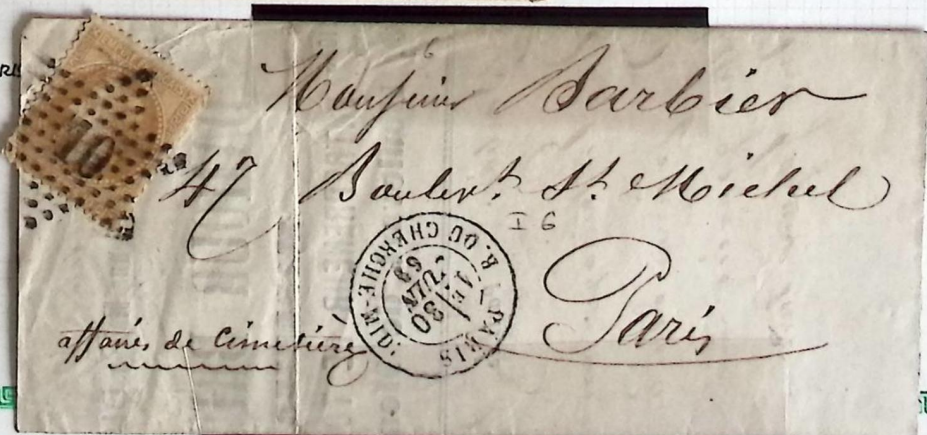 10
Monsieur Barbier
47 Boulevt. St. Michel
I 6
Paris
affaires de Cimetière
PARIS
R. DU CHERCHE-MIDI
1E
30
JUIN
68